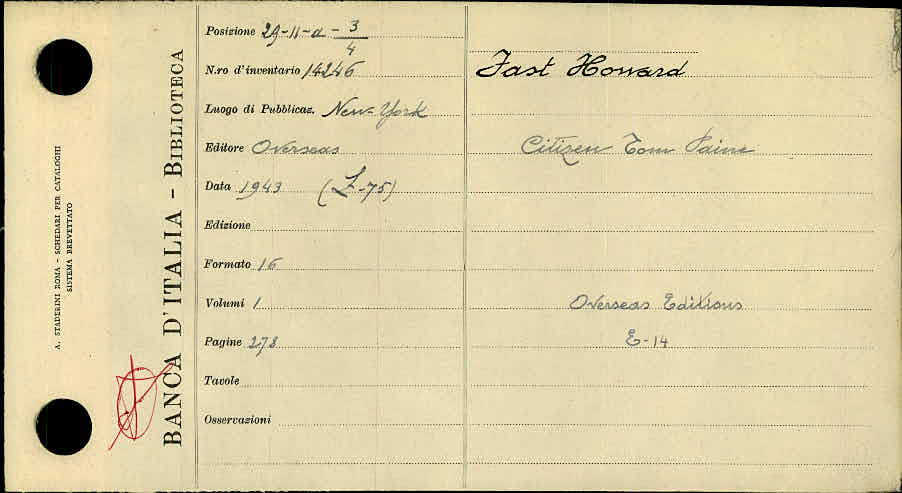 A. STADERINI ROMA - SCHEDARI PER CATALOGHI
SISTEMA BREVETTATO
BANCA D'ITALIA - BIBLIOTECA
Posizione 29-11-a-3/4
N.ro d'inventario 14246
Luogo di Pubblicaz. New-York
Editore Overseas
Data 1943 (£-75)
Edizione
Formato 16
Volumi 1
Pagine 278
Tavole
Osservazioni
Fast Howard
Citizen Tom Paine
Overseas Editions
E-14